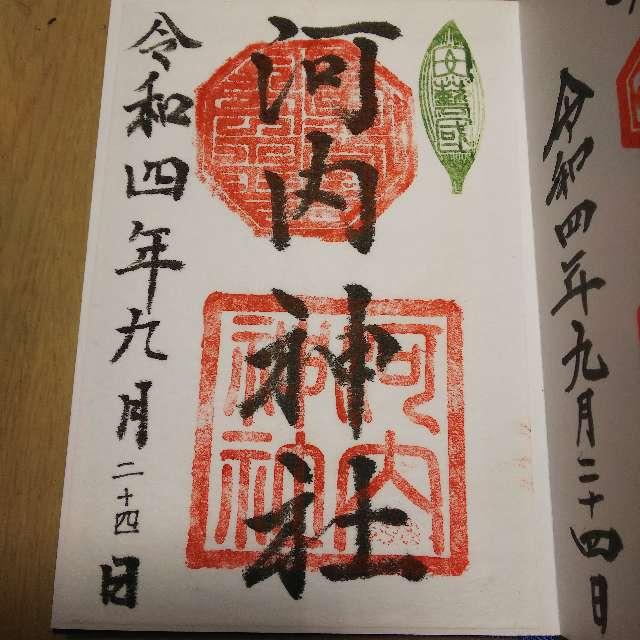 令和四年九月二十四日
河内神社
河内
令和四年九月二十四日